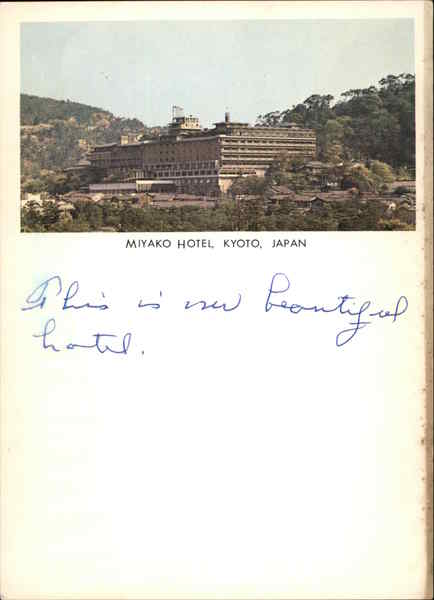 MIYAKO HOTEL, KYOTO, JAPAN
This is our beautiful
hotel.